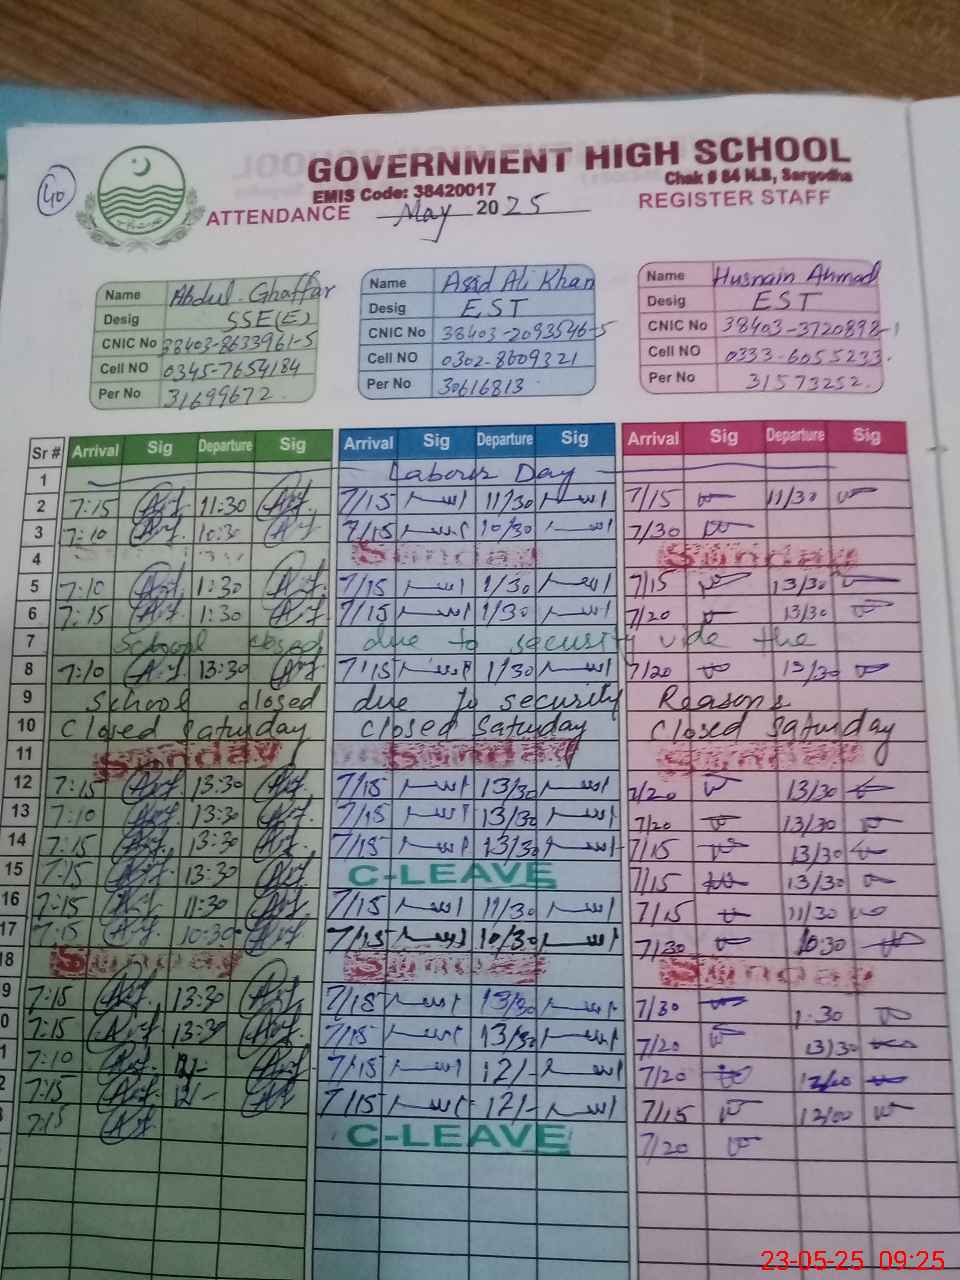 40
GOVERNMENT HIGH SCHOOL
EMIS Code: 38420017 Chak # 84 N.B, Sargodha
ATTENDANCE May 2025 REGISTER STAFF
Name Abdul Ghaffar
Desig SSE(E)
CNIC No 38403-8633961-5
Cell NO 0345-7654184
Per No 31699672
Name Asad Ali Khan
Desig EST
CNIC No 38403-2093546-5
Cell NO 0302-8609321
Per No 30616813
Name Husnain Ahmad
Desig EST
CNIC No 38403-3720898-1
Cell NO 0333-6055233
Per No 31573252
Sr # Arrival Sig Departure Sig Arrival Sig Departure Sig Arrival Sig Departure Sig
1 Labours Day
2 7:15 11:30 7/15 11/30 7/15 11/30
3 7:10 10:30 7/15 10/30 7/30
4 Sunday Sunday
5 7:10 1:30 7/15 1/30 7/15 13/30
6 7:15 1:30 7/15 1/30 7/20 13/30
7 School closed due to security vide the
8 7:10 13:30 7/15 1/30 7/20 13/30
9 School closed due to security Reasons
10 Closed Saturday closed Saturday closed Saturday
11 Sunday Sunday Sunday
12 7:15 13:30 7/15 13/30 7/20 13/30
13 7:10 13:30 7/15 13/30 7/20 13/30
14 7:15 13:30 7/15 13/30 7/15 13/30
15 7:15 13:30 C-LEAVE 7/15 13/30
16 7:15 11:30 7/15 11/30 7/15 11/30
17 7:15 10:30 7/15 10/30 7/30 10:30
18 Sunday Sunday Sunday
9 7:15 13:30 7/15 13/30 7/30 1:30
0 7:15 13:30 7/15 13/30 7/20 13/30
1 7:10 12/- 7/15 12/- 7/20
2 7:15 12/- 7/15 12/- 7/15 12/00
3 7:15 C-LEAVE 7/20
23-05-25 09:25